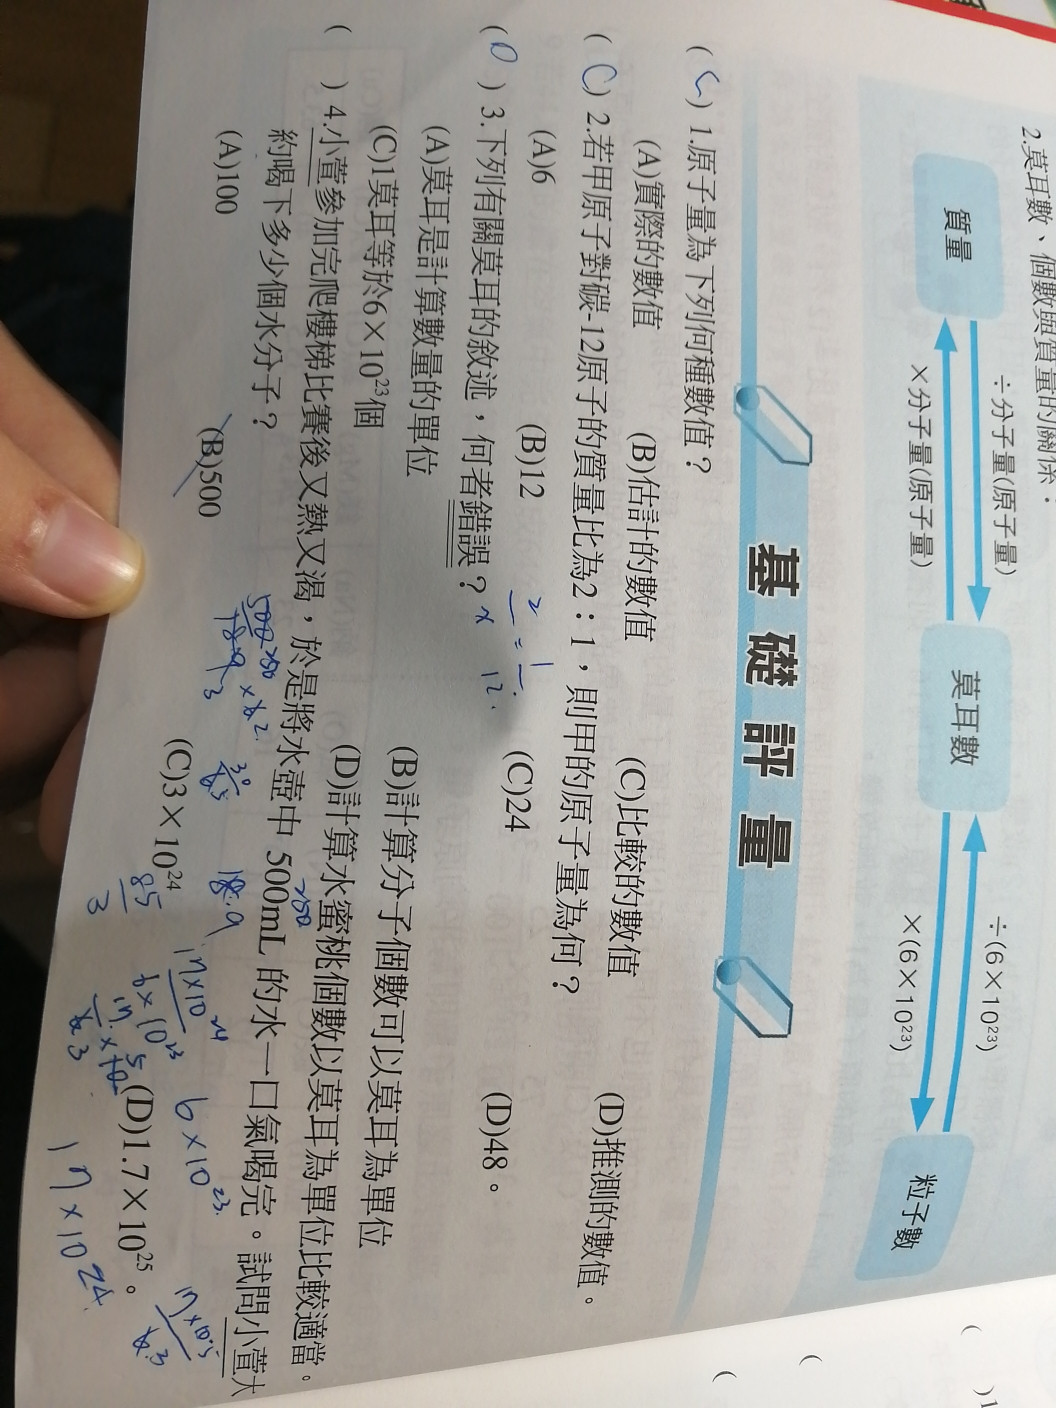 2.莫耳數、個數與質量的關係：
÷分子量(原子量)
÷(6×10²³)
質量
莫耳數
粒子數
×分子量(原子量)
×(6×10²³)
基礎評量
(C) 1.原子量為下列何種數值？
(A)實際的數值 (B)估計的數值 (C)比較的數值 (D)推測的數值。
(C) 2.若甲原子對碳-12原子的質量比為2：1，則甲的原子量為何？
(A)6 (B)12 (C)24 (D)48。
(D) 3.下列有關莫耳的敘述，何者錯誤？
(A)莫耳是計算數量的單位 (B)計算分子個數可以莫耳為單位
(C)1莫耳等於6×10²³個 (D)計算水蜜桃個數以莫耳為單位比較適當。
( ) 4.小萱參加完爬樓梯比賽後又熱又渴，於是將水壺中 500mL 的水一口氣喝完。試問小萱大
約喝下多少個水分子？
(A)100 (B)500 (C)3×10²⁴ (D)1.7×10²⁵。
250
6×10²³
17×10²⁴